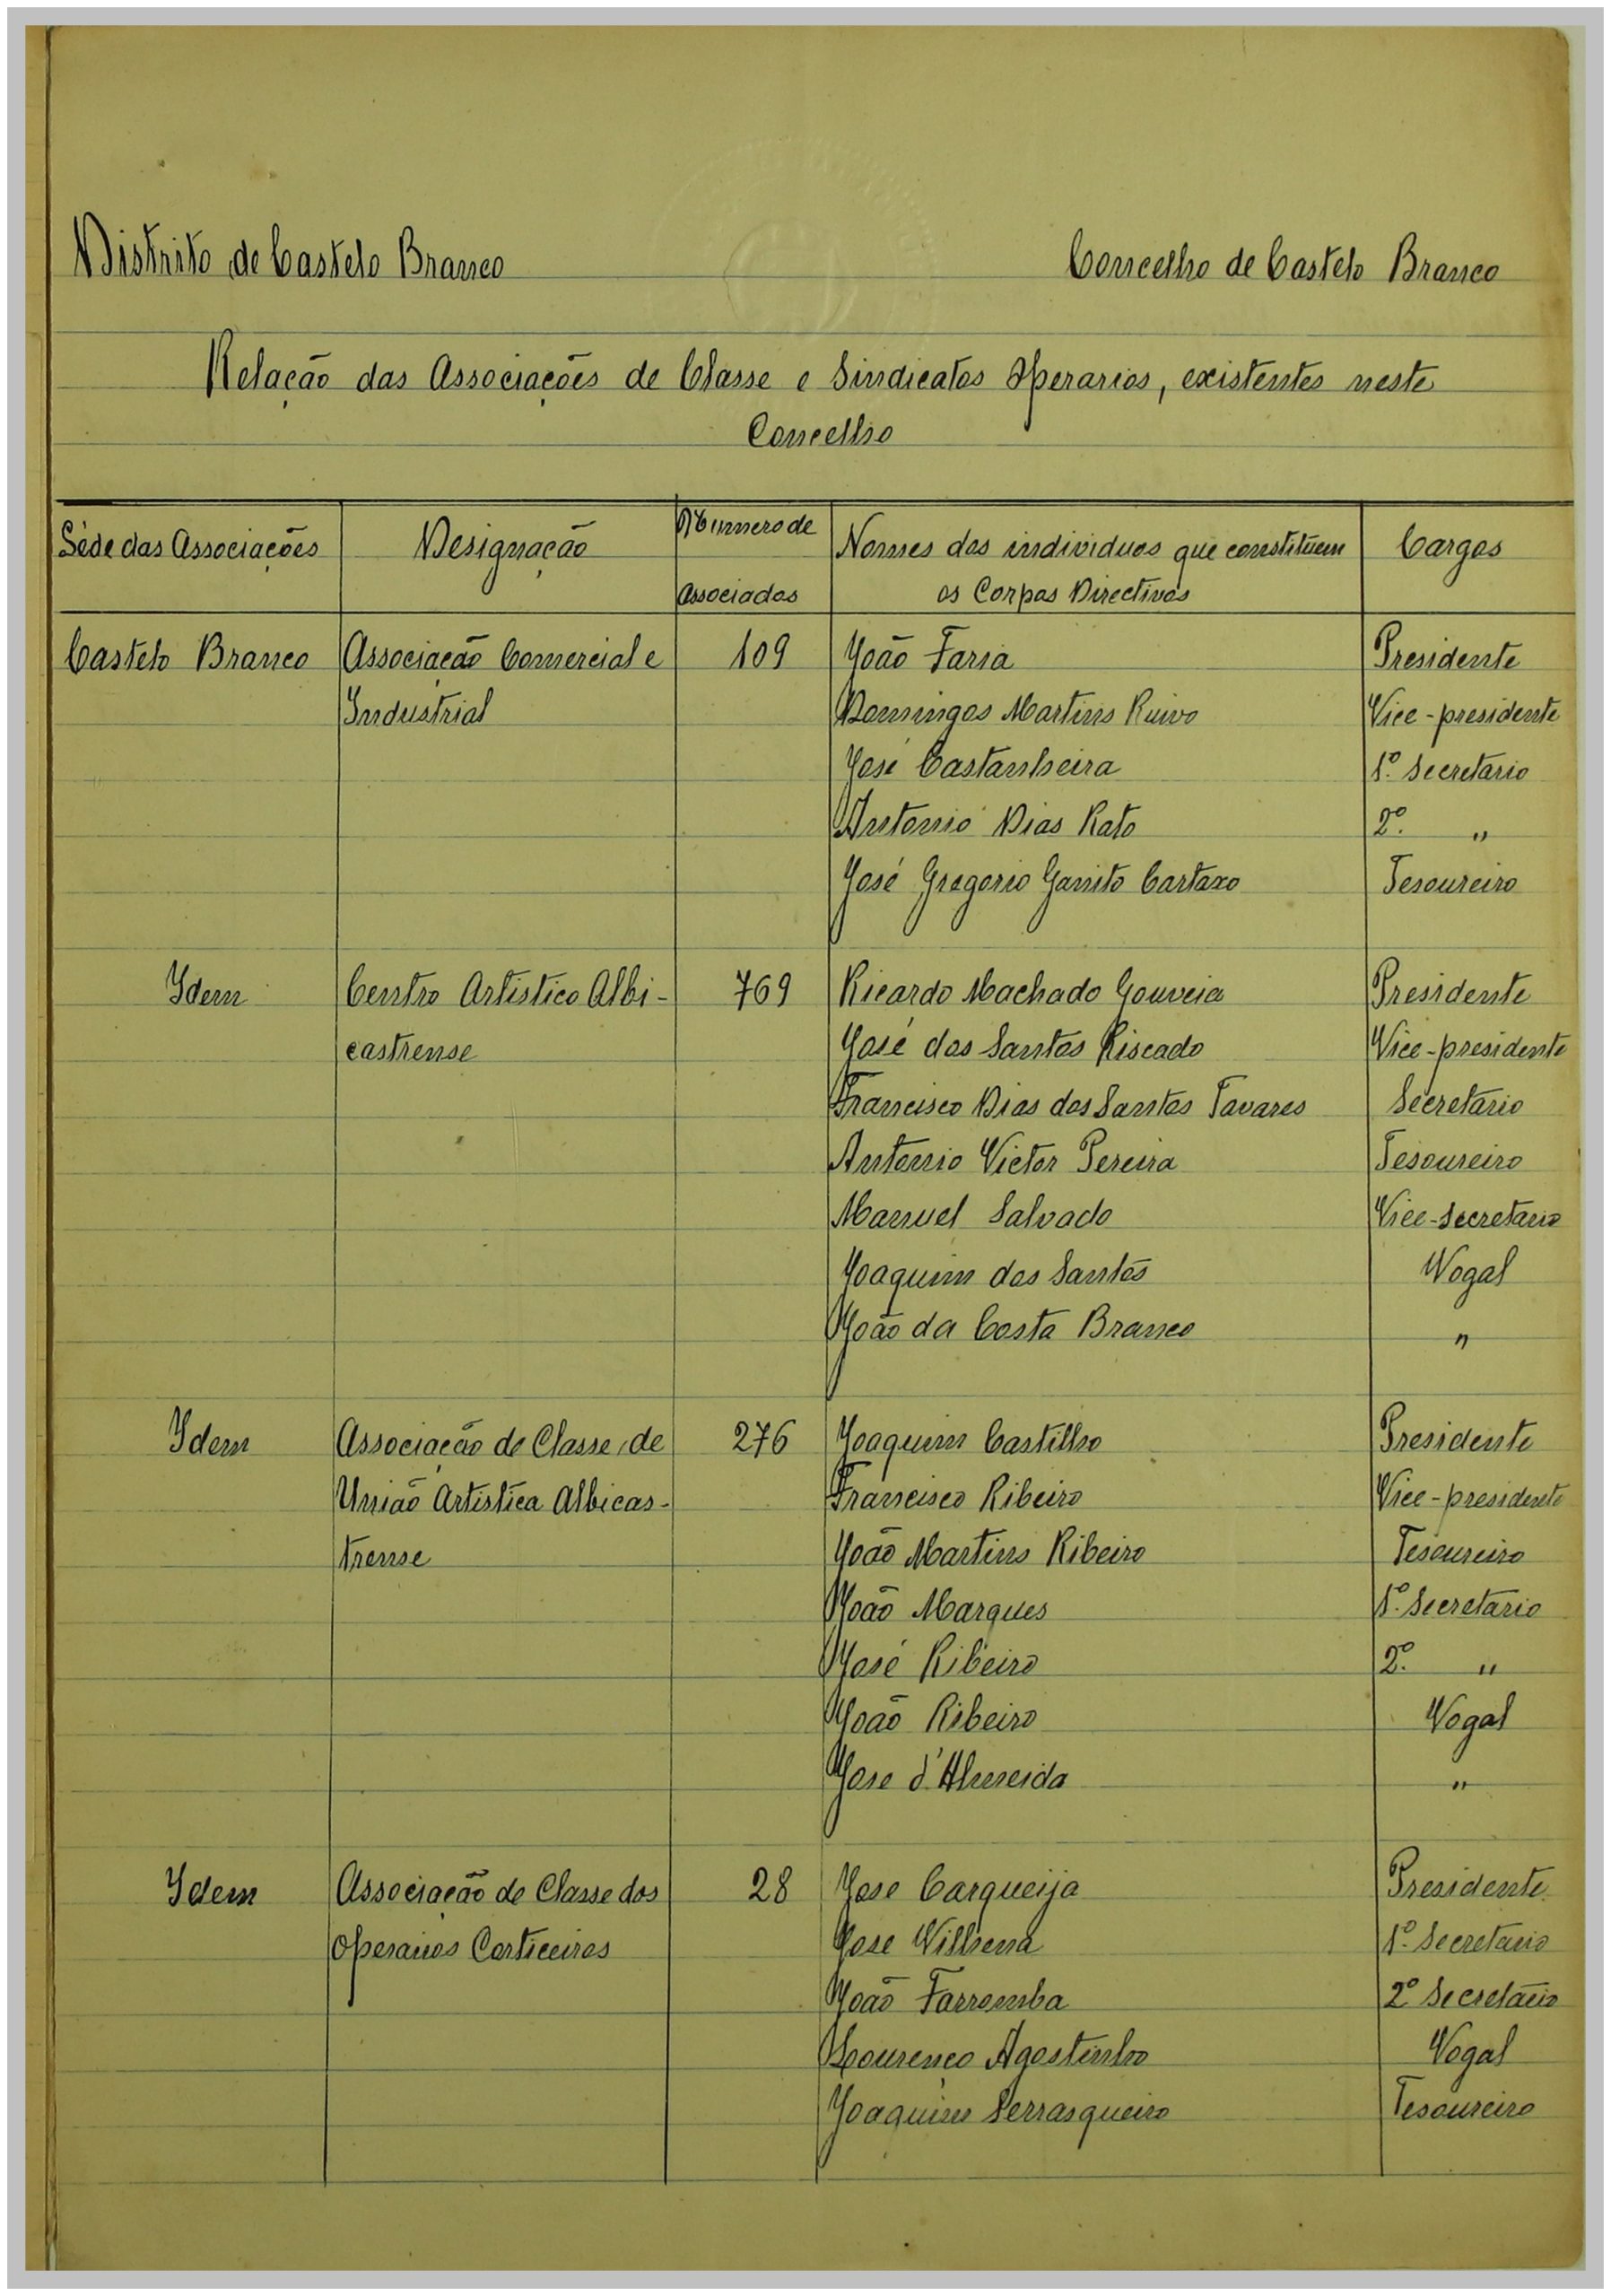 Distrito de Castelo Branco Concelho de Castelo Branco
Relação das Associações de Classe e Sindicatos Operarios, existentes neste
Concelho
Séde das Associações Designação Numero de Associados Nomes dos individuos que constitúem os Corpos Directivos Cargos
Castelo Branco Associação Comercial e 109 João Faria Presidente
Industrial Domingos Martins Ruivo Vice-presidente
José Castanheira 1º. Secretario
Antonio Dias Rato 2º. "
José Gregorio Ganito Cartaxo Tesoureiro
Idem Centro Artistico Albi- 769 Ricardo Machado Gouveia Presidente
castrense José dos Santos Riscado Vice-presidente
Francisco Dias dos Santos Tavares Secretário
Antonio Victor Pereira Tesoureiro
Manuel Salvado Vice-Secretario
Joaquim dos Santos Vogal
João da Costa Branco "
Idem Associação de Classe de 276 Joaquim Castilho Presidente
União Artistica Albicas- Francisco Ribeiro Vice-presidente
trense João Martins Ribeiro Tesoureiro
João Marques 1º. Secretario
José Ribeiro 2º. "
João Ribeiro Vogal
Jose d'Almeida "
Idem Associação de Classe dos 28 Jose Carqueija Presidente
Operarios Corticeiros Jose Vilhena 1º. Secretario
João Farromba 2º Secretário
Lourenço Agostinho Vogal
Joaquim Serrasqueiro Tesoureiro